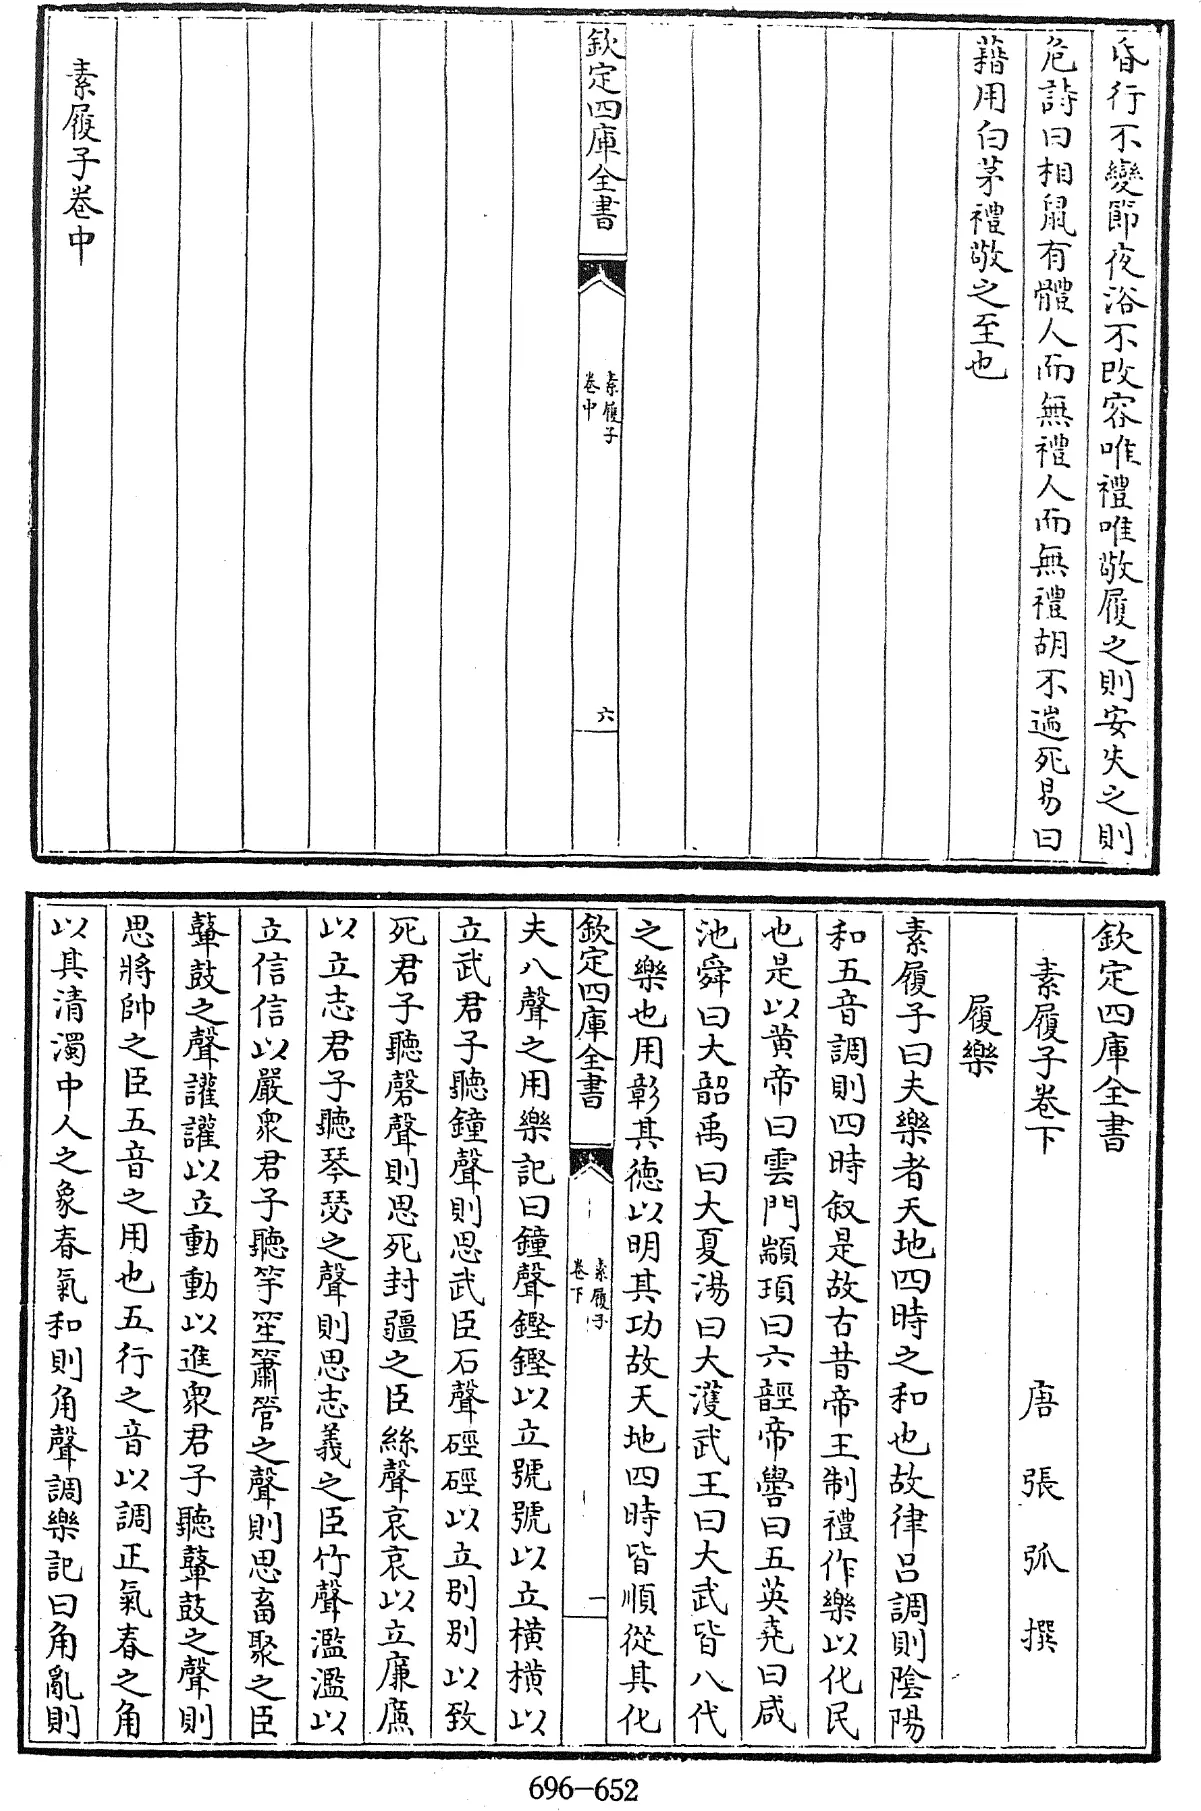 昏行不變節夜浴不改容唯禮唯敬履之則安失之則
危詩曰相鼠有體人而無禮人而無禮胡不遄死易曰
藉用白茅禮敬之至也
欽定四庫全書
素履子
卷中
六
素履子卷中
欽定四庫全書
素履子卷下
唐張弧撰
履樂
素履子曰夫樂者天地四時之和也故律呂調則陰陽
和五音調則四時叙是故古昔帝王制禮作樂以化民
也是以黄帝曰雲門顓頊曰六䪫帝嚳曰五英堯曰咸
池舜曰大韶禹曰大夏湯曰大濩武王曰大武皆八代
之樂也用彰其德以明其功故天地四時皆順從其化
欽定四庫全書
素履子
卷下
一
夫八聲之用樂記曰鐘聲鏗鏗以立號號以立横横以
立武君子聽鐘聲則思武臣石聲硜硜以立别别以致
死君子聽磬聲則思死封疆之臣絲聲哀哀以立廉廉
以立志君子聽琴瑟之聲則思志義之臣竹聲濫濫以
立信信以嚴衆君子聽竽笙簫管之聲則思畜聚之臣
鼙鼓之聲讙讙以立動動以進衆君子聽鼙鼓之聲則
思將帥之臣五音之用也五行之音以調正氣春之角
以其清濁中人之象春氣和則角聲調樂記曰角亂則
696-652